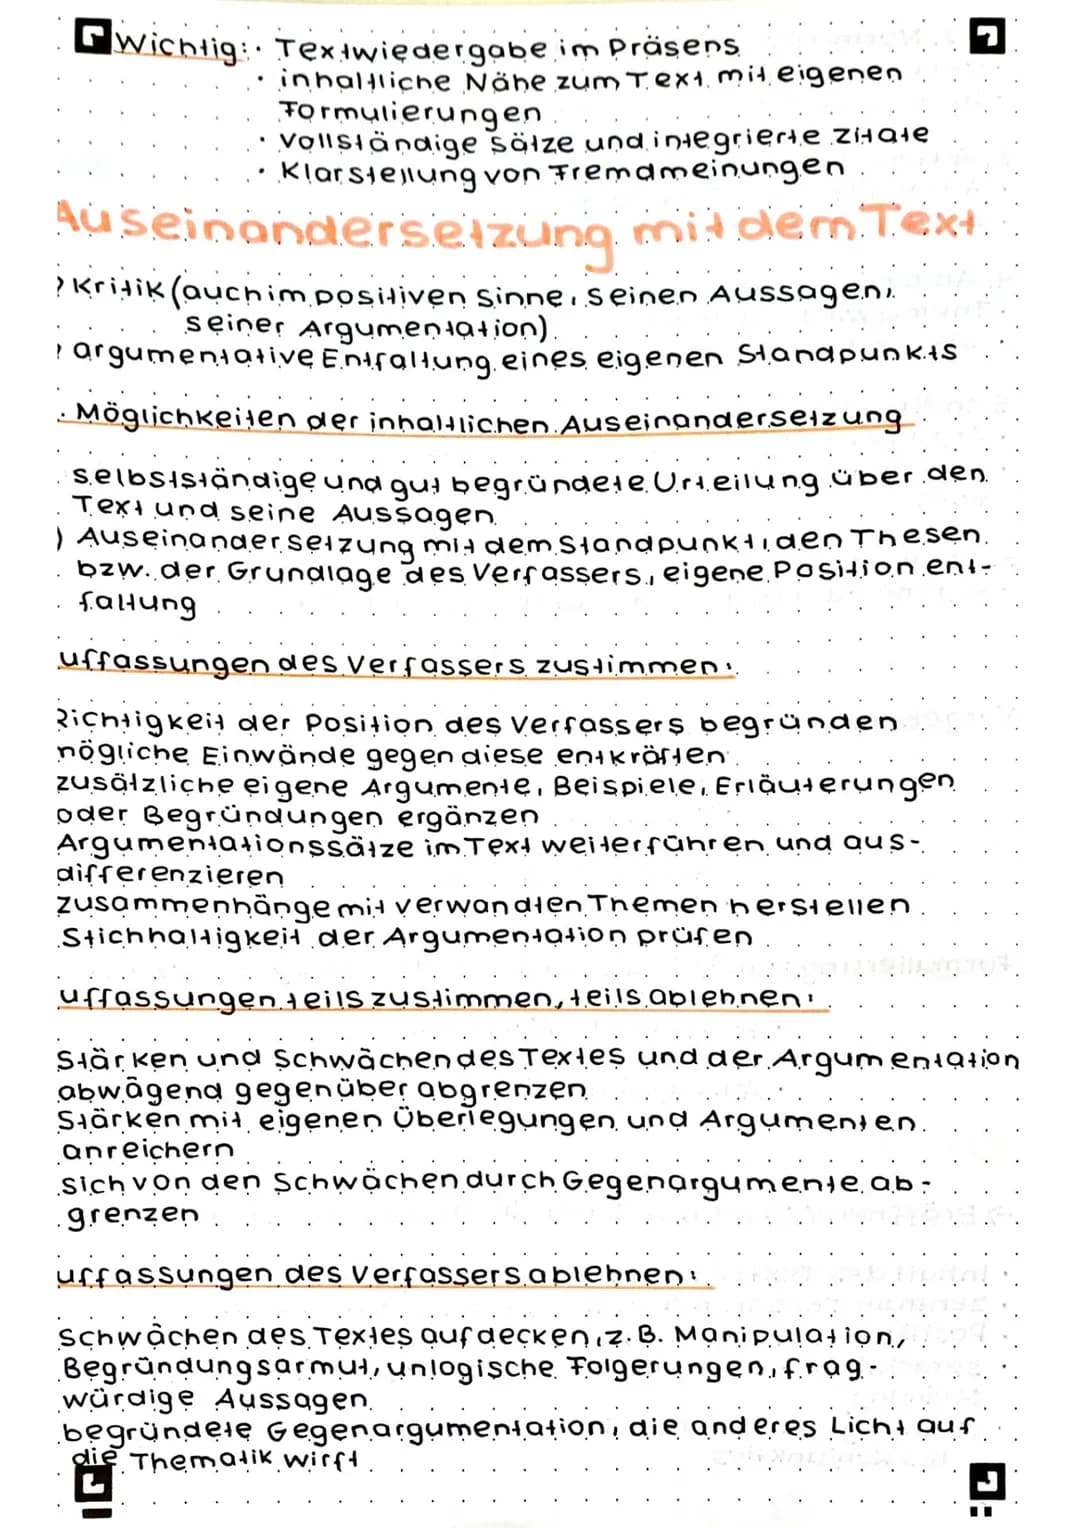 Wichtig: · Textwiedergabe im Präsens
· inhaltliche Nähe zum Text mit eigenen
Formulierungen
· vollständige Sätze und integrierte Zitate
· Klarstellung von Fremdmeinungen
Auseinandersetzung mit dem Text
Kritik (auch im positiven Sinne, seinen Aussagen,
seiner Argumentation)
argumentative Entfaltung eines eigenen Standpunkts
· Möglichkeiten der inhaltlichen Auseinandersetzung
selbstständige und gut begründete Urteilung über den
Text und seine Aussagen
) Auseinandersetzung mit dem Standpunkt, den Thesen
bzw. der Grundlage des Verfassers, eigene Position ent-
faltung
uffassungen des Verfassers zustimmen:
Richtigkeit der Position des Verfassers begründen
mögliche Einwände gegen diese entkräften
zusätzliche eigene Argumente, Beispiele, Erläuterungen
oder Begründungen ergänzen
Argumentationssätze im Text weiterführen und aus-
differenzieren
zusammenhänge mit verwandten Themen herstellen
Stichhaltigkeit der Argumentation prüfen
uffassungen teils zustimmen, teils ablehnen:
Stärken und Schwächen des Textes und der Argumentation
abwägend gegenüber abgrenzen
Stärken mit eigenen Überlegungen und Argumenten
anreichern
sich von den Schwächen durch Gegenargumente ab-
grenzen
uffassungen des Verfassers ablehnen:
Schwächen des Textes aufdecken, z.B. Manipulation,
Begründungsarmut, unlogische Folgerungen, frag-
würdige Aussagen
begründete Gegenargumentation, die anderes Licht auf
die Thematik wirft